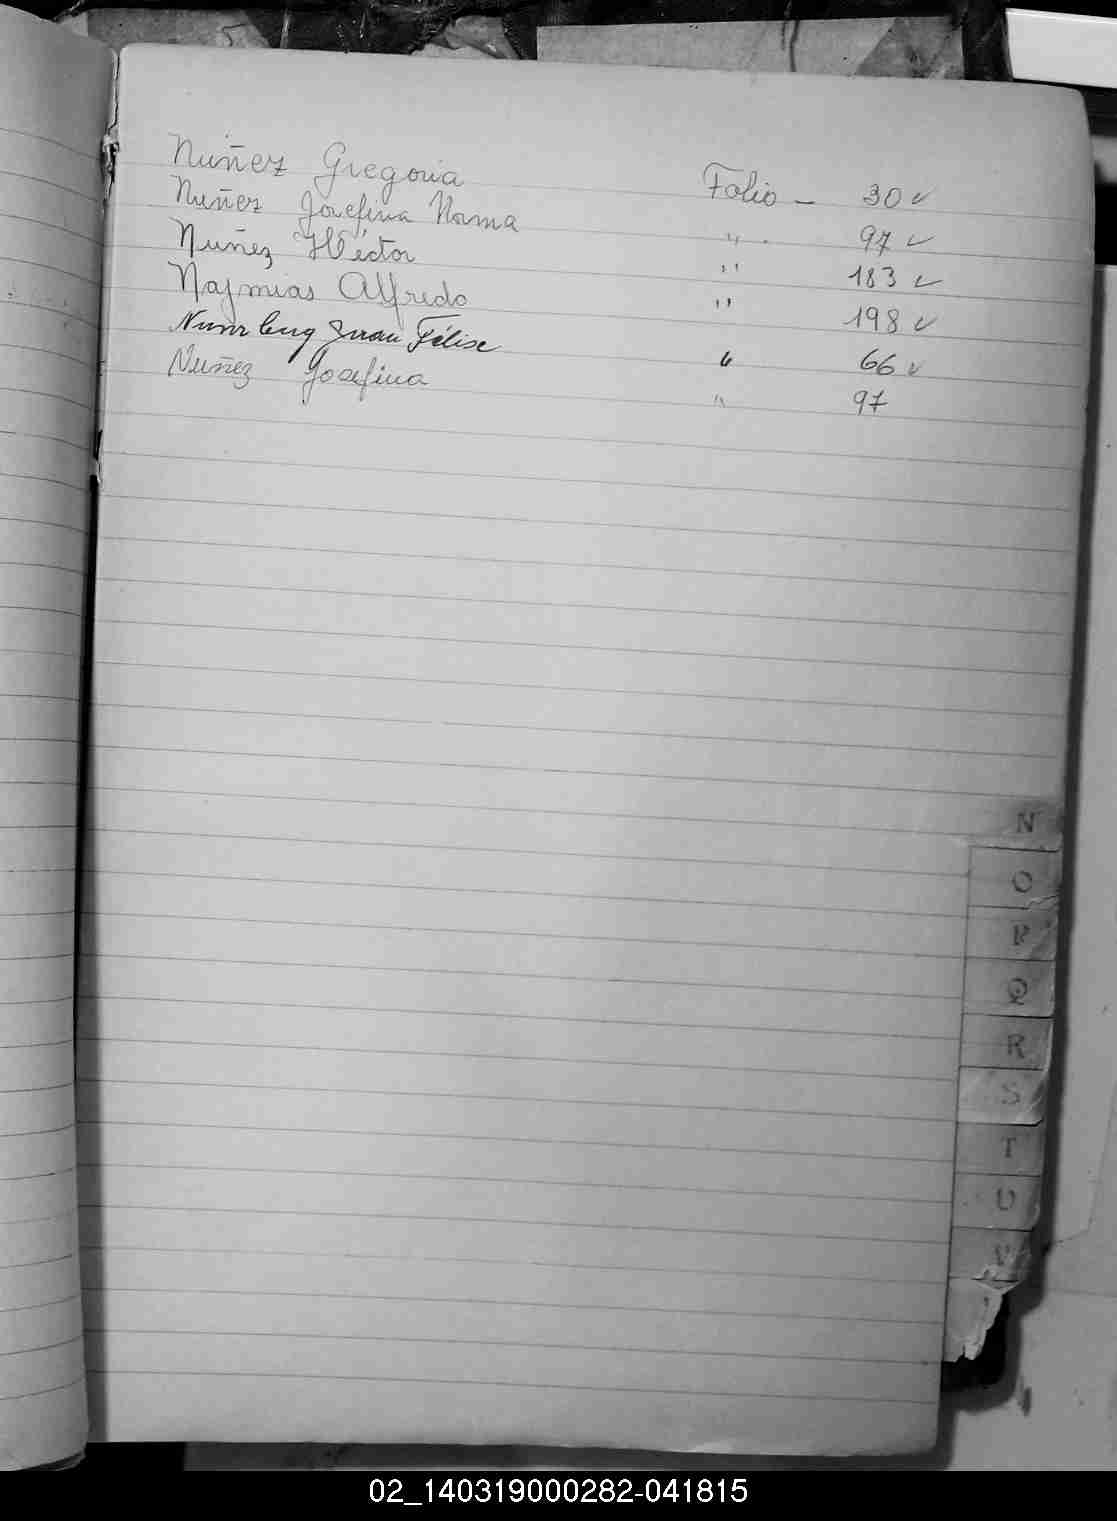 Nuñez Gregoria Folio - 30 ✓
Nuñez Josefina Norma " 97 ✓
Nuñez Héctor " 183 ✓
Najmias Alfredo " 198 ✓
Juan Félise " 66 ✓
Nuñez Josefina " 97
N
O
P
Q
R
S
T
U
V
02_140319000282-041815